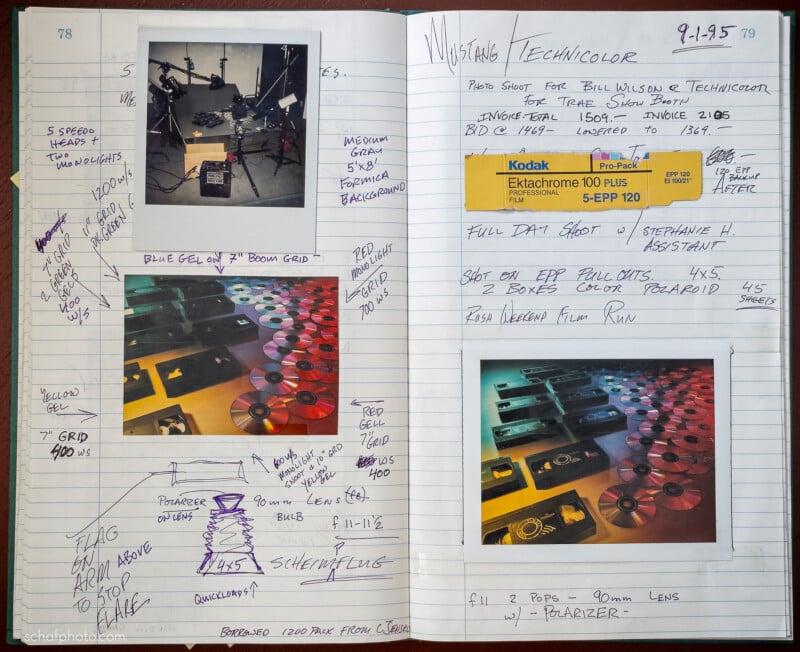 78
5
ES.
ME
5 SPEEDO
HEADS +
TWO MONOLIGHTS
1200 W/S
11" GRID
DR. GREEN G
7" GRID
2 GREEN
GELS
400
W/S
MEDIUM
GRAY
5'X8'
FORMICA
BACKGROUND
BLUE GEL ON 7" BOOM GRID
RED
MONOLIGHT
GRID
700 WS
YELLOW
GEL
7" GRID
400 WS
RED
GELL
7" GRID
WS
400
MONOLIGHT
SHOOT 10" GRID
YELLOW
GEL
POLARIZER
ON LENS
90mm LENS
BULB
f 11-11½
SCHEIMFLUG
P
4X5
QUICKLOADS
FLAG
ON
ARM ABOVE
TO STOP
FLARE
BORROWED 1200 PACK FROM C. JENSEN
schafphoto.com
9-1-95 79
MUSTANG / TECHNICOLOR
PHOTO SHOOT FOR BILL WILSON @ TECHNICOLOR
FOR TRAE SHOW BOOTH
INVOICE TOTAL 1509.— INVOICE 2105
BID @ 1469— LOWERED TO 1369.—
120 EPP
BACKUP
AFTER
Kodak Pro-Pack
Ektachrome 100 PLUS
PROFESSIONAL
FILM
5-EPP 120
EPP 120
EI 100/21°
FULL DAY SHOOT W/ STEPHANIE H.
ASSISTANT
SHOT ON EPP PULL OUTS. 4X5.
2 BOXES COLOR POLAROID 45
SHEETS
RUSH WEEKEND FILM RUN
f 11 2 POPS — 90mm LENS
W/ - POLARIZER -